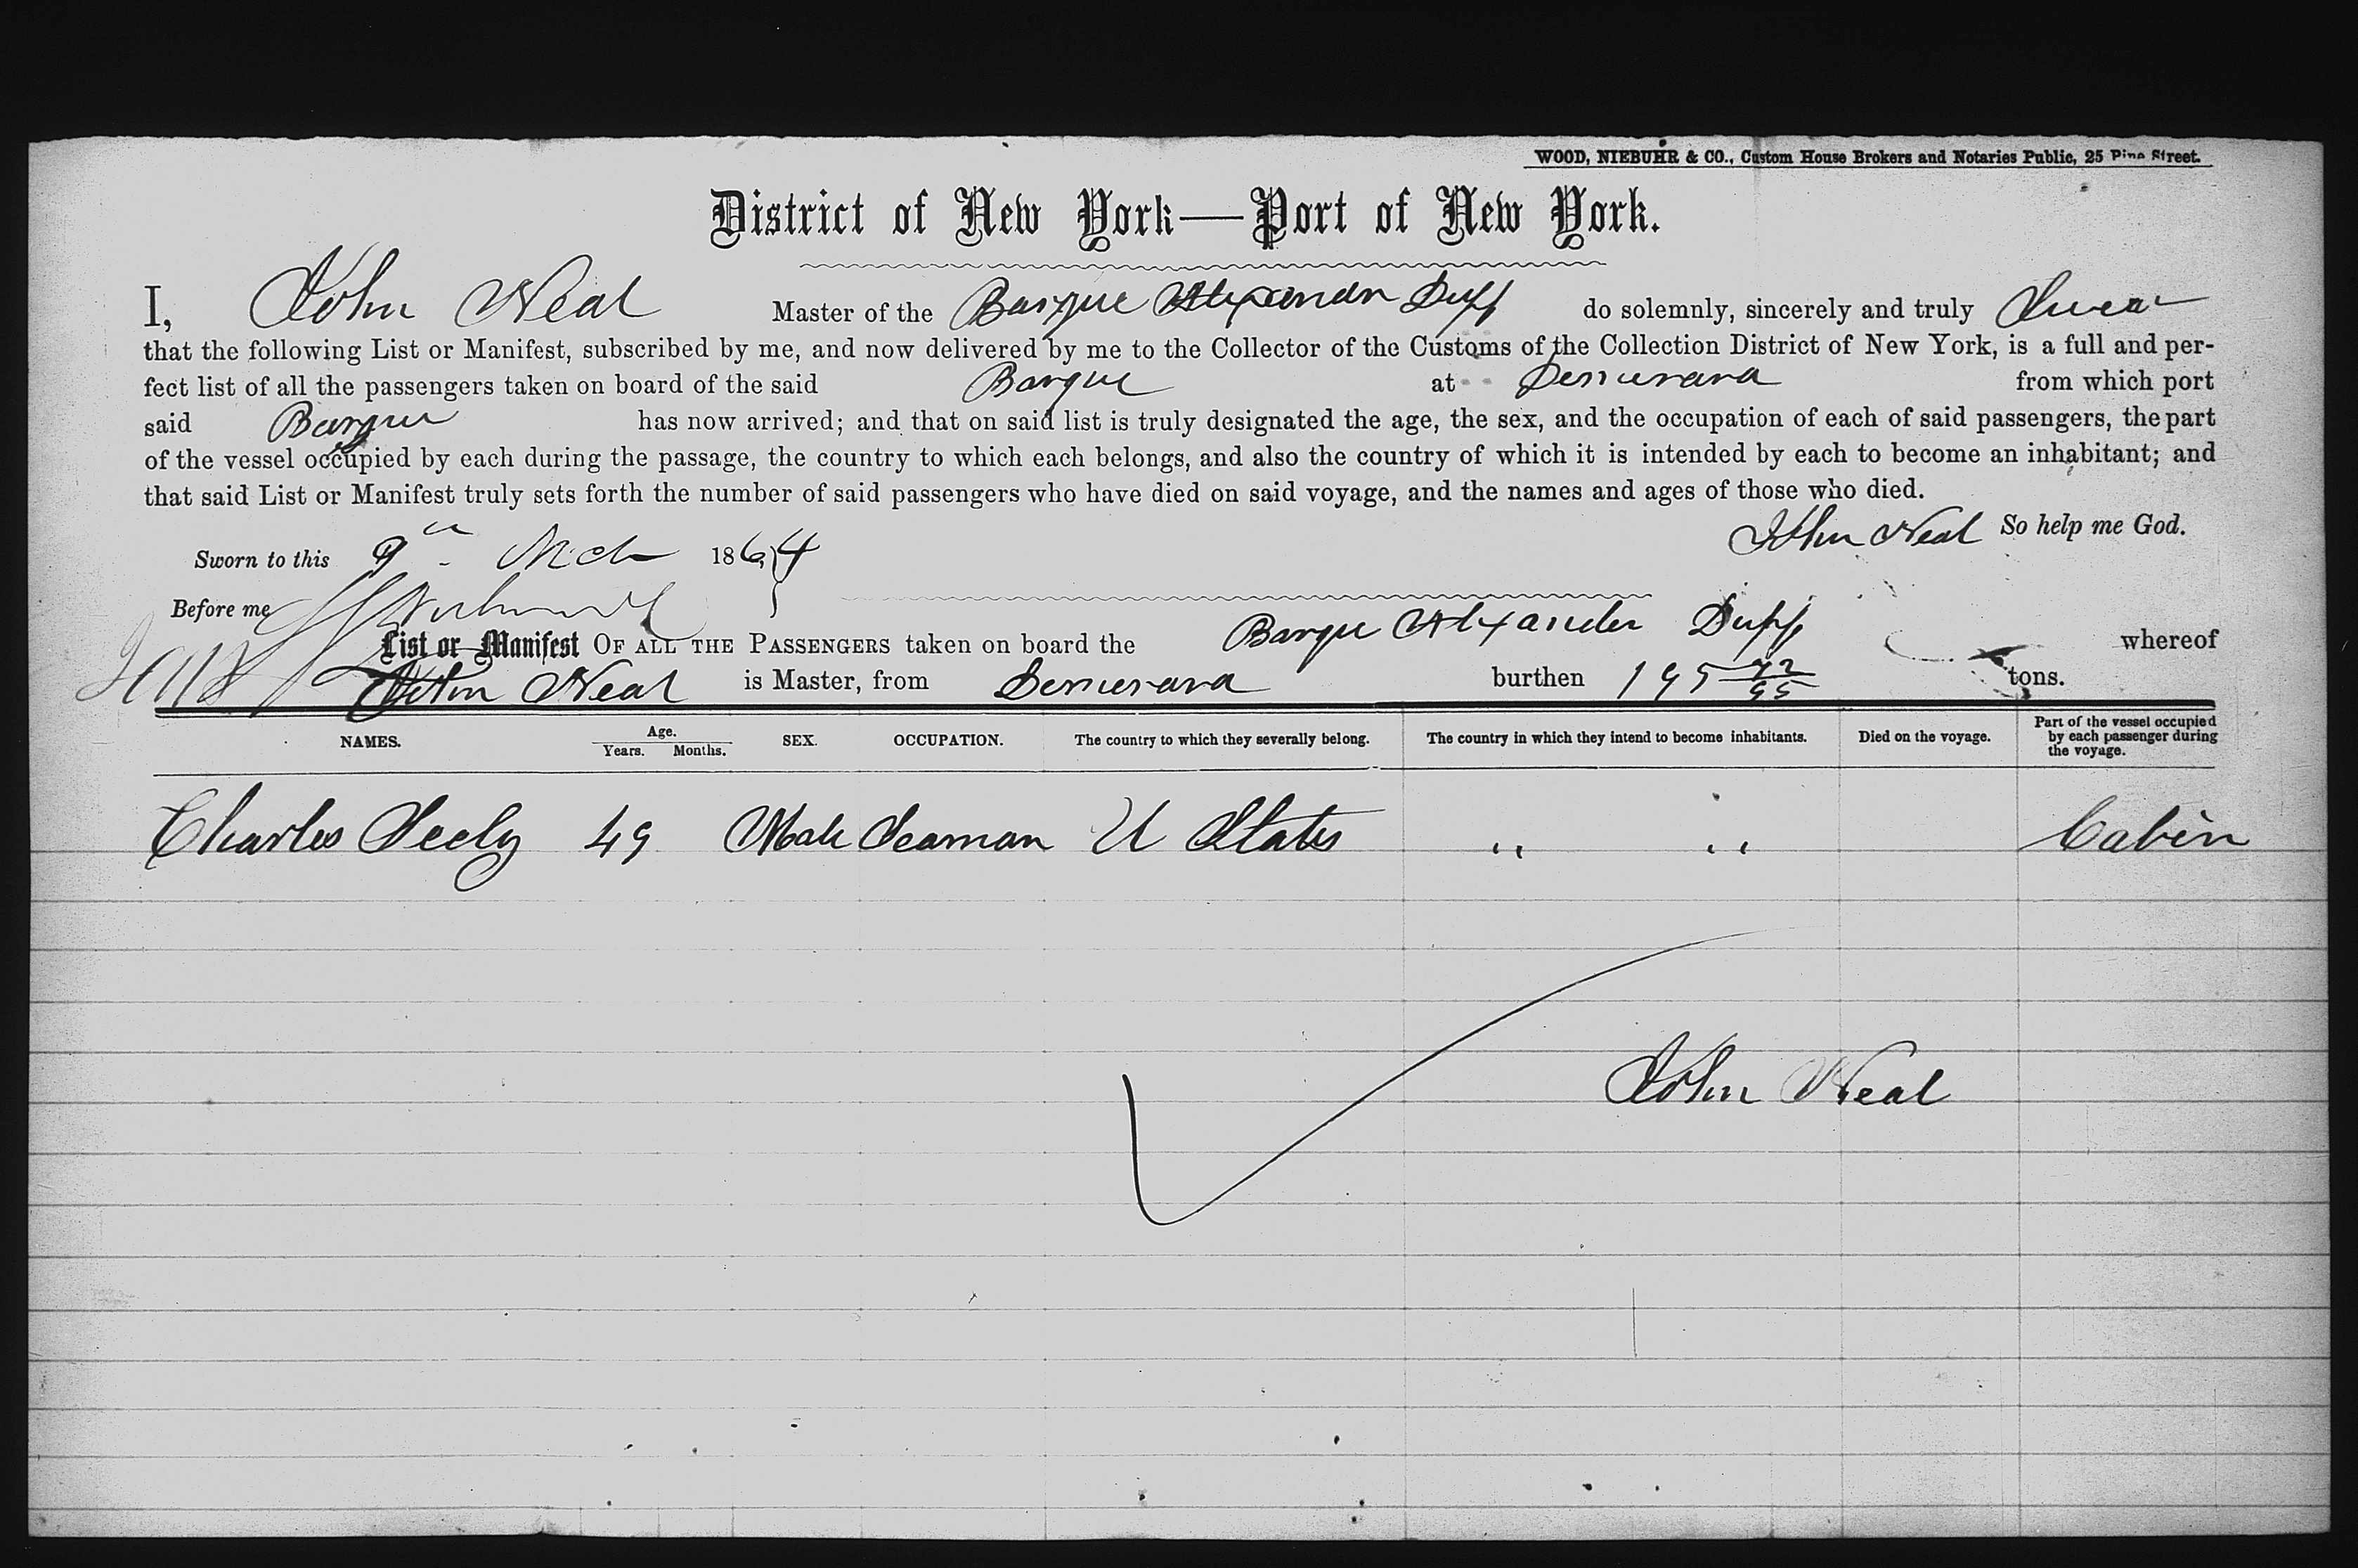 WOOD, NIEBUHR & CO., Custom House Brokers and Notaries Public, 25 Pine Street.
District of New York—Port of New York.
I, John Neal Master of the Barque Alexander Duff do solemnly, sincerely and truly Swear
that the following List or Manifest, subscribed by me, and now delivered by me to the Collector of the Customs of the Collection District of New York, is a full and per-
fect list of all the passengers taken on board of the said Barque at Demerara from which port
said Barque has now arrived; and that on said list is truly designated the age, the sex, and the occupation of each of said passengers, the part
of the vessel occupied by each during the passage, the country to which each belongs, and also the country of which it is intended by each to become an inhabitant; and
that said List or Manifest truly sets forth the number of said passengers who have died on said voyage, and the names and ages of those who died.
John Neal So help me God.
Sworn to this 9" Mch 1864
Before me
List or Manifest OF ALL THE PASSENGERS taken on board the Barque Alexander Duff whereof
John Neal is Master, from Demerara burthen 195 72/95 tons.
NAMES. Age. Years. Months. SEX. OCCUPATION. The country to which they severally belong. The country in which they intend to become inhabitants. Died on the voyage. Part of the vessel occupied by each passenger during the voyage.
Charles Seely 49 Male Seaman U States " " Cabin
John Neal